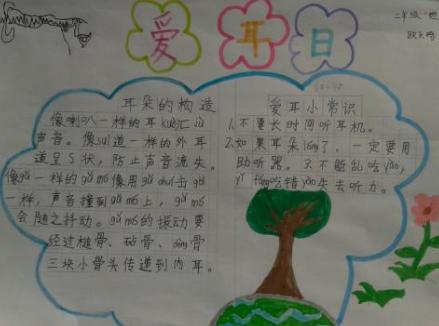 爱耳日
二年级一班
耳朵的构造
像喇叭一样的耳kuò汇jù
声音。像suì道一样的外耳
道呈S状，防止声音流失。
像gǔ一样的gǔ mó像用gǔ chuí击gǔ
一样，声音撞到gǔ mó上，gǔ mó
会随之抖动。gǔ mó的振动要
经过槌骨、砧骨、dèng骨
三块小骨头传递到内耳。
爱耳小常识
1.不要长时间听耳机。
2.如果耳朵lóng了，一定要用
助听器。3.不能乱吃yào，
吃错yào失去听力。